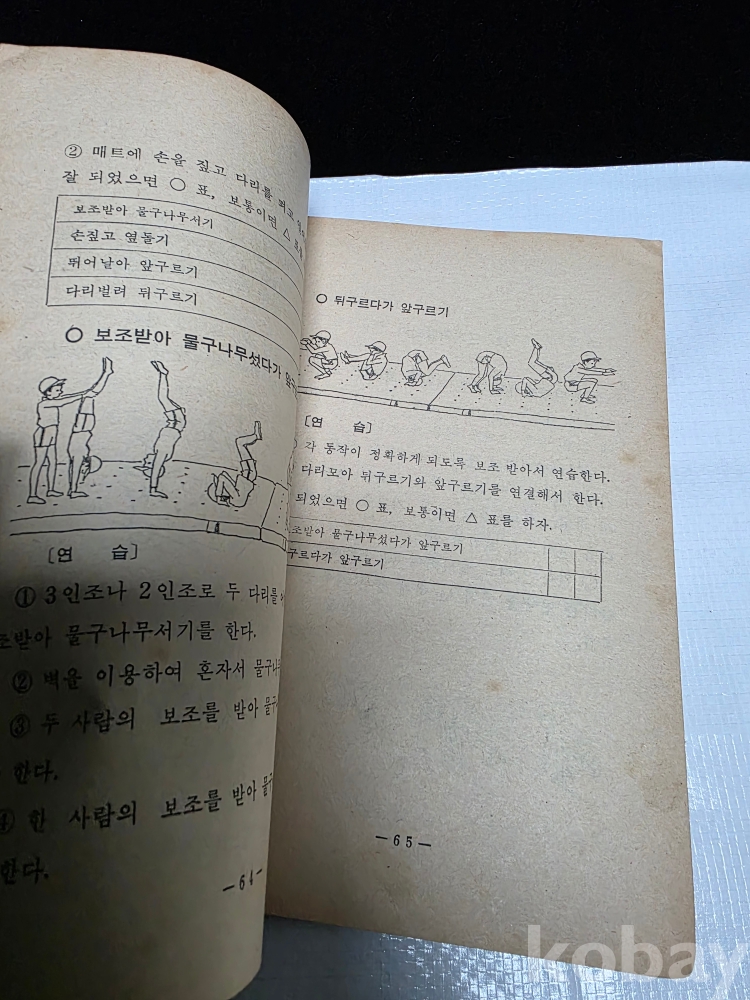 ② 매트에 손을 짚고 다리를 펴고
잘 되었으면 ○ 표, 보통이면 △ 표를
보조받아 물구나무서기
손짚고 옆돌기
뛰어날아 앞구르기
다리벌려 뒤구르기
○ 보조받아 물구나무섰다가 앞
[연 습]
① 3인조나 2인조로 두 다리를
조받아 물구나무서기를 한다.
② 벽을 이용하여 혼자서 물구나
③ 두 사람의 보조를 받아 물구
한다.
④ 한 사람의 보조를 받아 물구
한다.
— 64 —
○ 뒤구르다가 앞구르기
[연 습]
각 동작이 정확하게 되도록 보조 받아서 연습한다.
다리모아 뒤구르기와 앞구르기를 연결해서 한다.
되었으면 ○ 표, 보통이면 △ 표를 하자.
조받아 물구나무섰다가 앞구르기
구르다가 앞구르기
— 65 —
kobay